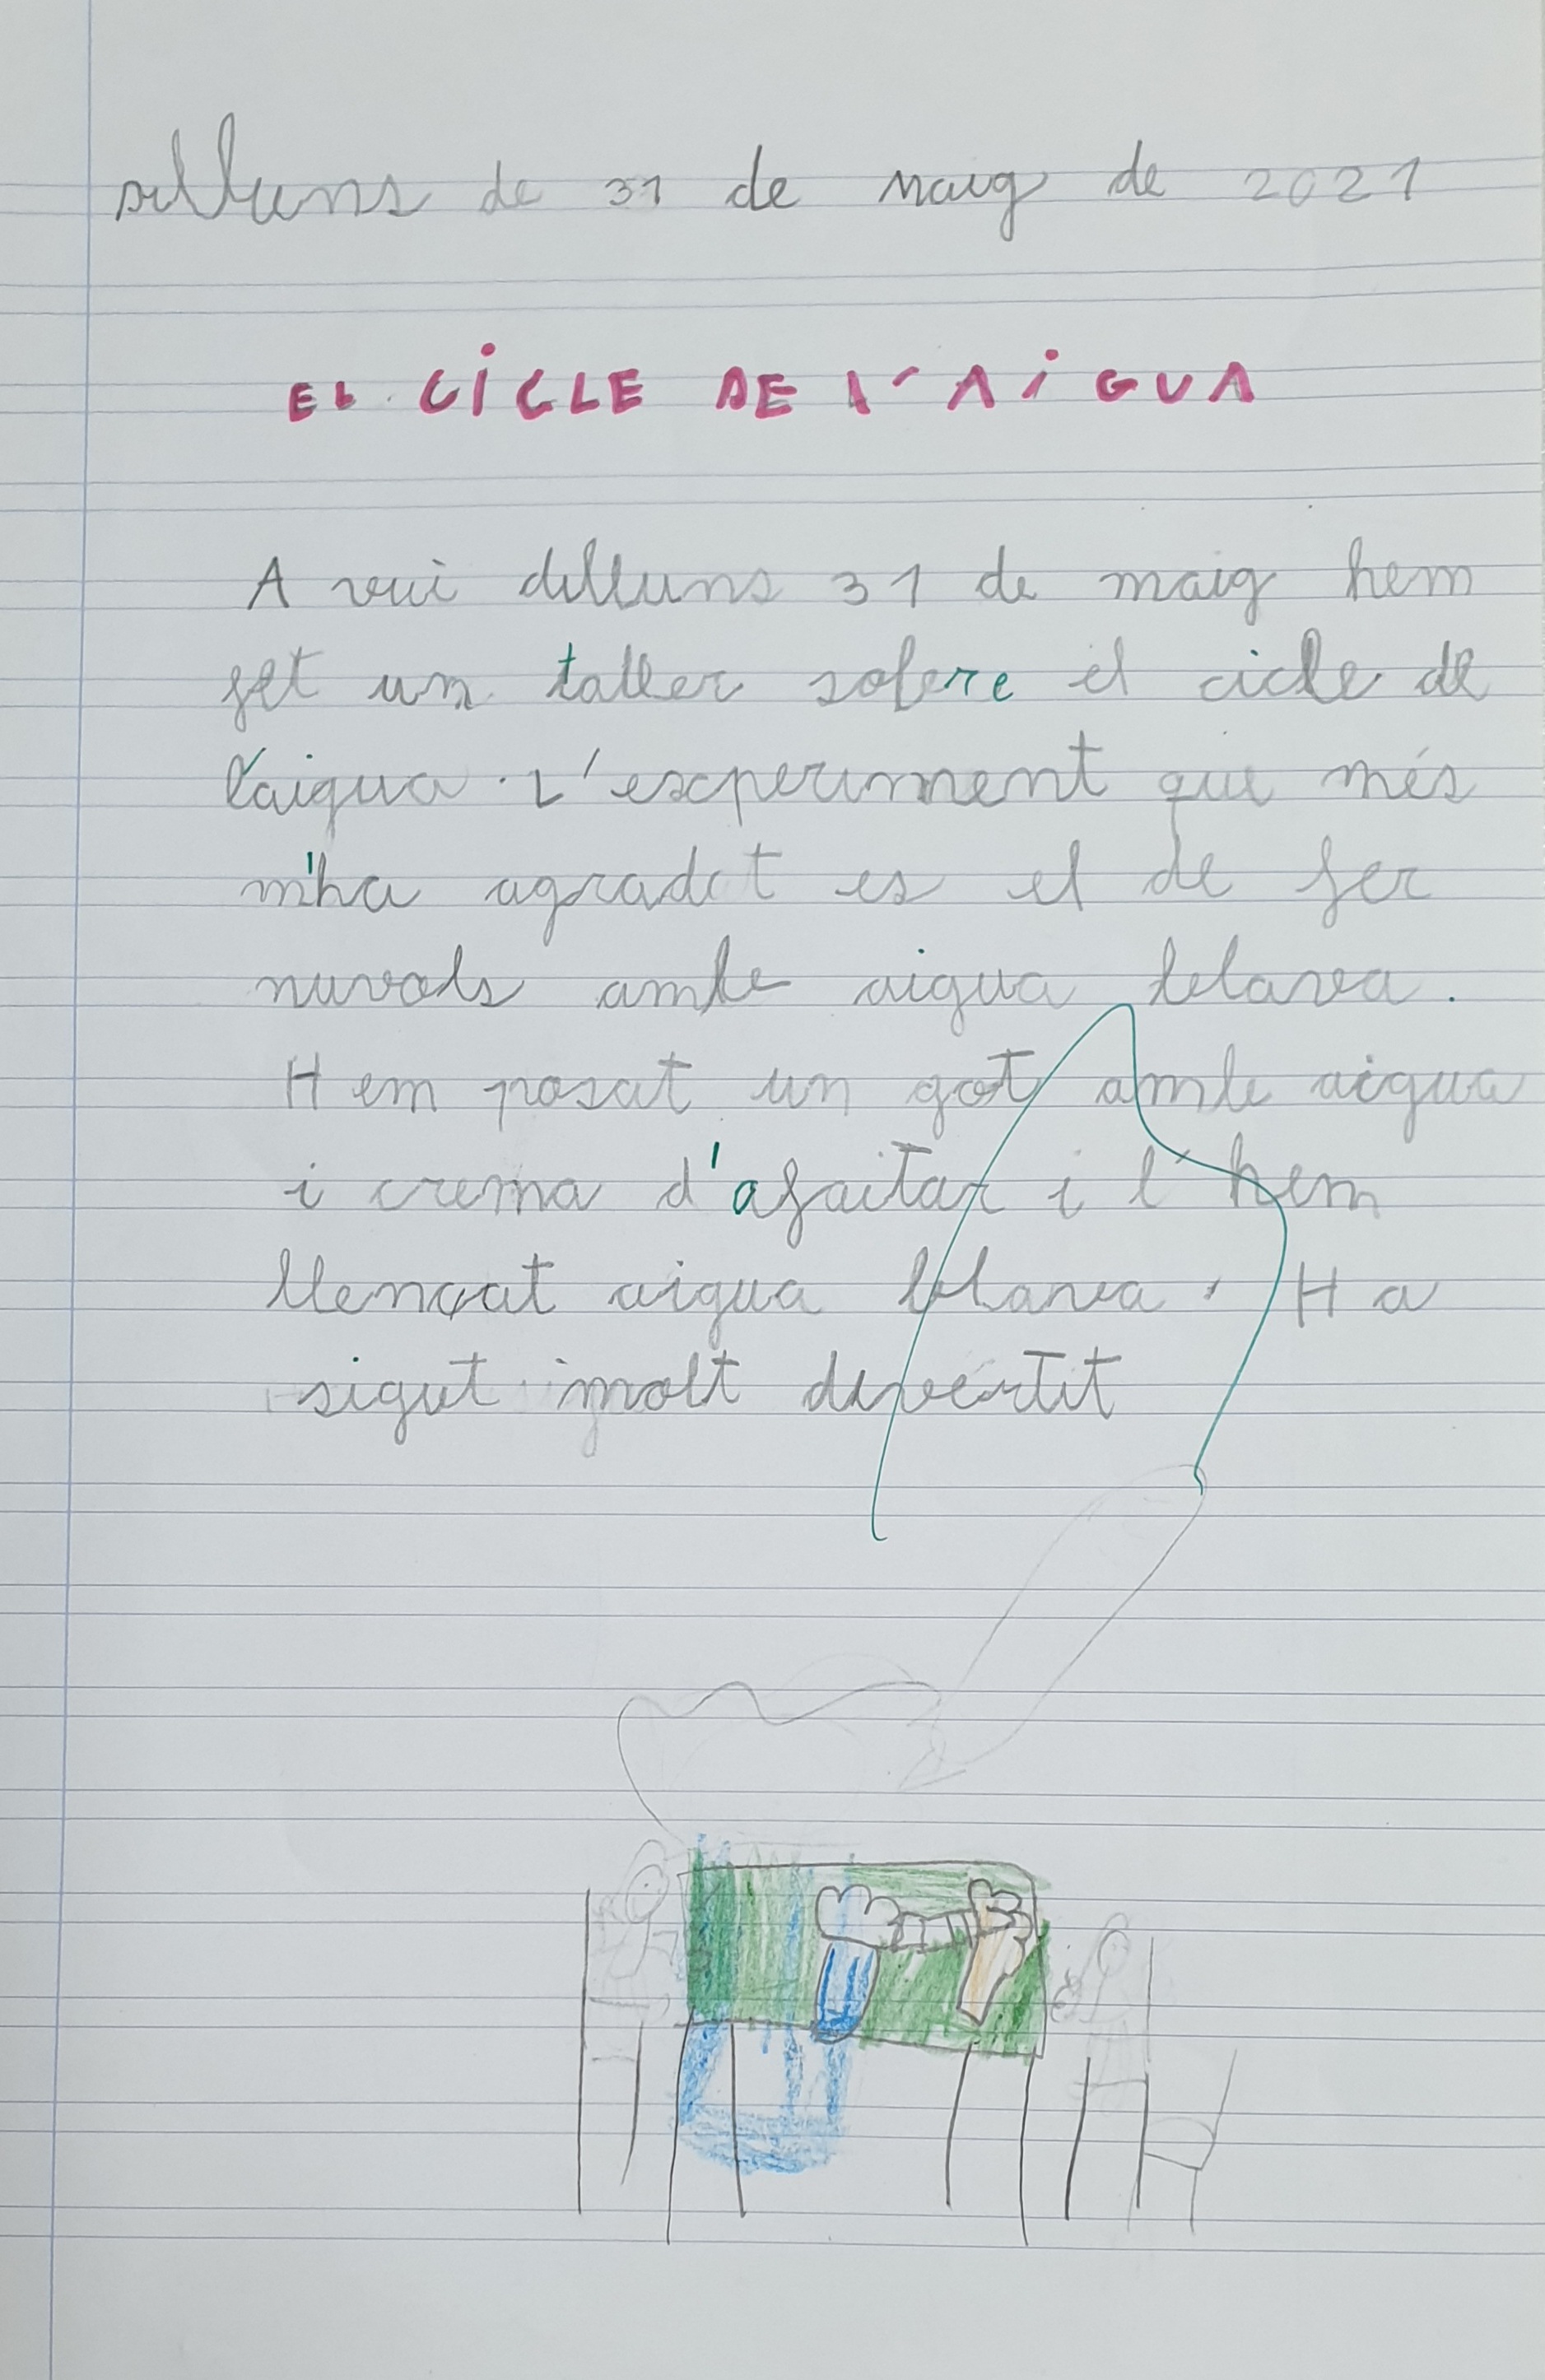 dilluns de 31 de maig de 2021
EL CICLE DE L'AIGUA
A vui dilluns 31 de maig hem
fet un taller sobre el cicle de
l'aigua. L'experiment que més
m'ha agradat es el de fer
nuvols amb aigua blava.
Hem posat un got amb aigua
i crema d'afaitar i l'hem
llençat aigua blava. Ha
sigut molt divertit